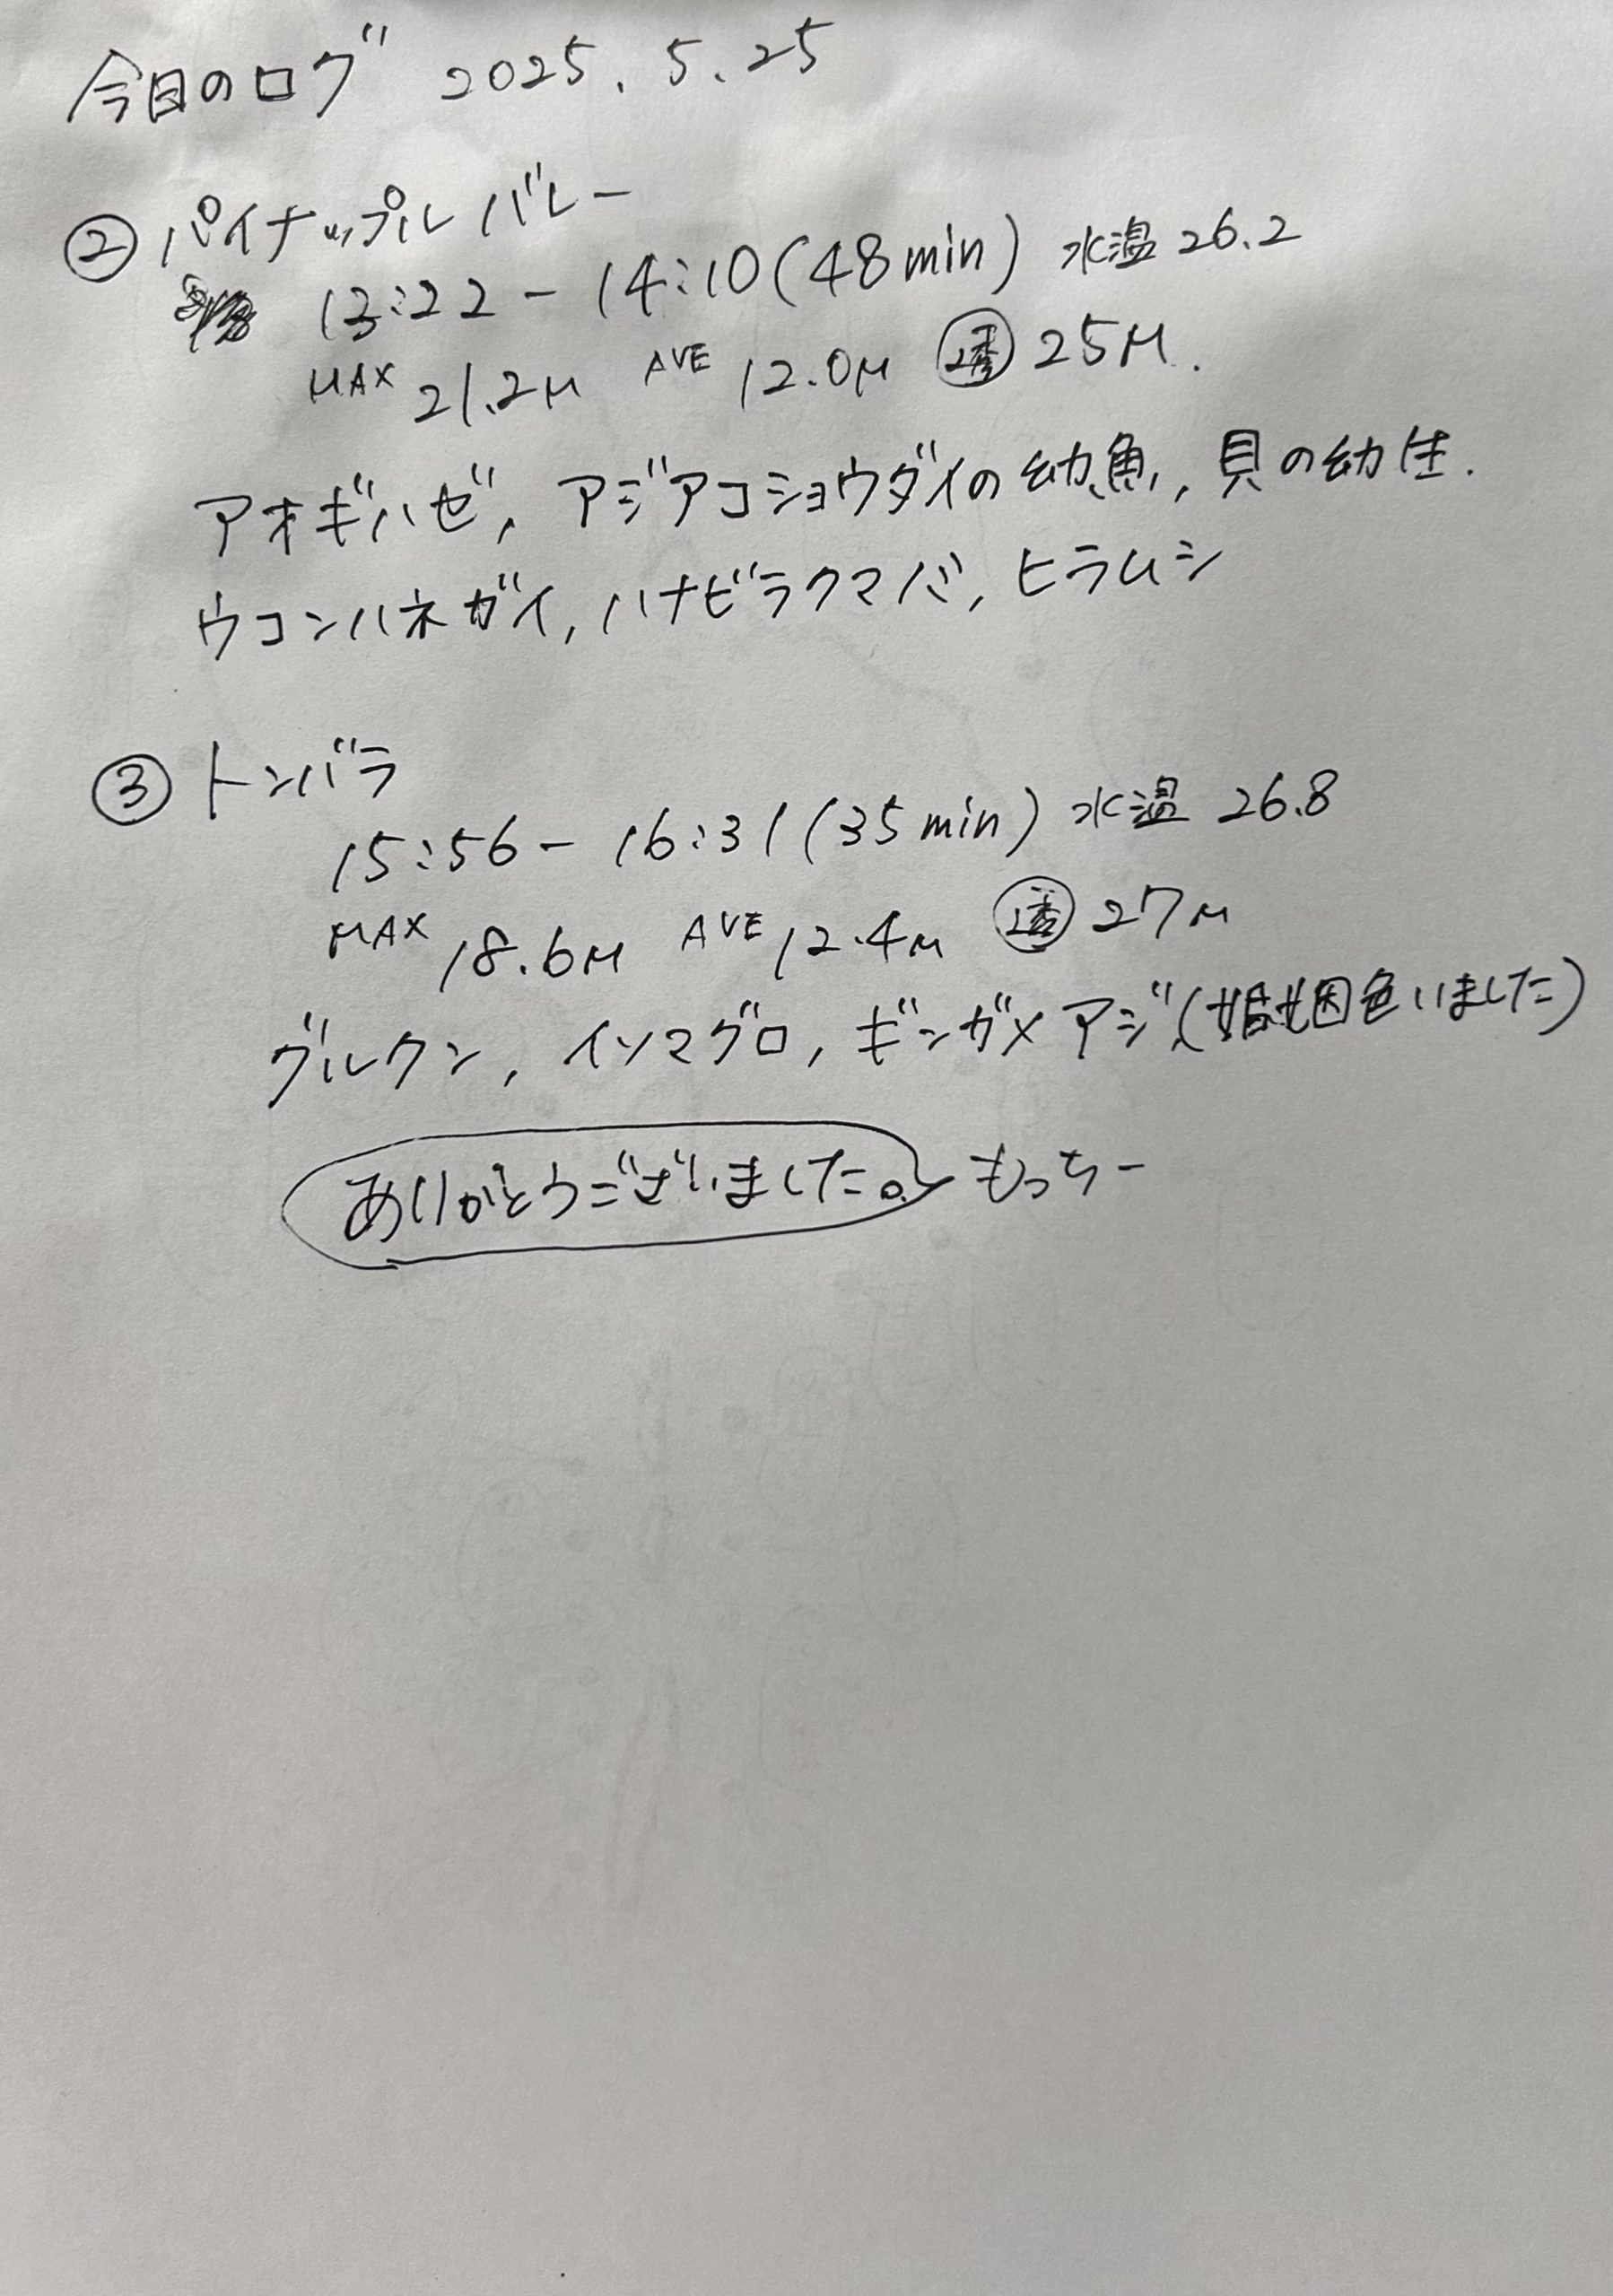 今日のログ 2025.5.25
② パイナップルバレー
13:22 - 14:10 (48min) 水温 26.2
MAX 21.2M AVE 12.0M 透 25M.
アオギハゼ, アジアコショウダイの幼魚, 貝の幼生.
ウコンハネガイ, ハナビラクマノミ, ヒラムシ
③ トンバラ
15:56 - 16:31 (35min) 水温 26.8
MAX 18.6M AVE 12.4M 透 27M
グルクン, イソマグロ, ギンガメアジ(婚姻色いました)
ありがとうございました。 もっちー